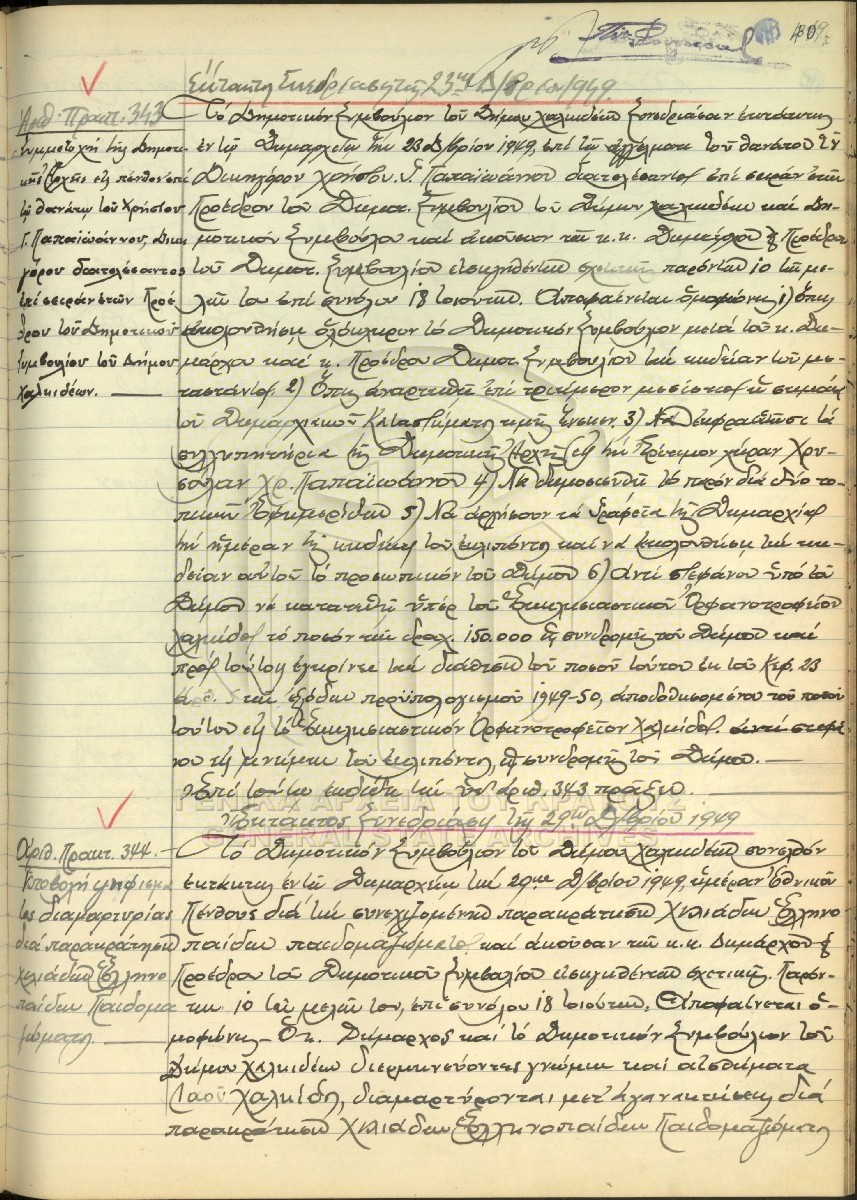 409
Ἔκτακτος Συνεδρίασις τῆς 23ης Δ/βρίου 1949
Ἀριθ. Πρακτ. 343
Συμμετοχὴ τῆς Δημοτι-
κῆς Ἀρχῆς εἰς πένθος ἐπὶ
τῷ θανάτῳ τοῦ Χρήστου
Γ. Παπαϊωάννου, Δικη-
γόρου διατελέσαντος
ἐπὶ σειρὰν ἐτῶν Προέ-
δρου τοῦ Δημοτικοῦ
Συμβουλίου τοῦ Δήμου
Χαλκιδέων.
Τὸ Δημοτικὸν Συμβούλιον τοῦ Δήμου Χαλκιδέων συνεδριάσαν ἐκτάκτως
ἐν τῷ Δημαρχείῳ τὴν 23 Δ/βρίου 1949, ἐπὶ τῷ ἀγγέλματι τοῦ θανάτου τοῦ
Δικηγόρου Χρήστου Γ. Παπαϊωάννου διατελέσαντος ἐπὶ σειρὰν ἐτῶν
Προέδρου τοῦ Δημοτ. Συμβουλίου τοῦ Δήμου Χαλκιδέων καὶ Δη-
μοτικοῦ Συμβούλου καὶ ἀκοῦσαν τῶν κ.κ. Δημάρχου & Προέδρου
τοῦ Δημοτ. Συμβουλίου εἰσηγηθέντων σχετικῶς παρόντων 10 τῶν με-
λῶν του ἐπὶ συνόλου 18 τοιούτων. Ἀποφαίνεται ὁμοφώνως 1) Ὅπως
ἀκολουθήσῃ ὁλόκληρον τὸ Δημοτικὸν Συμβούλιον μετὰ τοῦ κ. Δη-
μάρχου καὶ κ. Προέδρου Δημοτ. Συμβουλίου τὴν κηδείαν τοῦ με-
ταστάντος. 2) Ὅπως ἀναρτηθῇ ἐπὶ τριήμερον μεσίστιος ἡ σημαία
τοῦ Δημαρχιακοῦ Καταστήματος τιμῆς ἕνεκεν. 3) Νὰ ἐκφρασθῶσι τὰ
συλλυπητήρια τῆς Δημοτικῆς Ἀρχῆς εἰς τὴν ἐρίτιμον χήραν Χρυ-
σούλαν χρ. Παπαϊωάννου 4) Νὰ δημοσιευθῇ τὸ παρὸν διὰ δύο το-
πικῶν Ἐφημερίδων 5) Νὰ ἀργήσουν τὰ Γραφεῖα τῆς Δημαρχίας
τὴν ἡμέραν τῆς κηδείας τοῦ ἐκλιπόντος καὶ νὰ ἀκολουθήσῃ τὴν κη-
δείαν αὐτοῦ τὸ προσωπικὸν τοῦ Δήμου 6) Ἀντὶ στεφάνου ὑπὸ τοῦ
Δήμου νὰ κατατεθῇ ὑπὲρ τοῦ Ἐκκλησιαστικοῦ Ὀρφανοτροφείου
Χαλκίδος τὸ ποσὸν τῶν δραχ. 150.000 ὡς συνδρομῆς τοῦ Δήμου καὶ
πρὸς τοῦτο ἐγκρίνει τὴν διάθεσιν τοῦ ποσοῦ τούτου ἐκ τοῦ Κεφ. 23
ἄρθ. 5 τῶν ἐξόδων προϋπολογισμοῦ 1949-50, ἀποδοθησομένου τοῦ ποσοῦ
τούτου εἰς τὸ Ἐκκλησιαστικὸν Ὀρφανοτροφεῖον Χαλκίδος. ἀντὶ στεφά-
νου εἰς μνήμην τοῦ ἐκλιπόντος, ὡς συνδρομῆς τοῦ Δήμου.
Ἐπὶ τούτῳ ἐκδίδεται ἡ ὑπ' ἀριθ. 343 πρᾶξις.
ΓΕΝΙΚΑ ΑΡΧΕΙΑ ΤΟΥ ΚΡΑΤΟΥΣ
GENERAL STATE ARCHIVES
Ἔκτακτος Συνεδρίασις τῆς 29ης Δ/βρίου 1949
Ἀριθ. Πρακτ. 344.
Ὑποβολὴ ψηφίσμα
τος διαμαρτυρίας
διὰ παρακράτησιν
χιλιάδων Ἑλληνο
παίδων Παιδομα
ζώματος
Τὸ Δημοτικὸν Συμβούλιον τοῦ Δήμου Χαλκιδέων συνελθὸν
ἐκτάκτως ἐν τῷ Δημαρχείῳ τὴν 29ην Δ/βρίου 1949, ἡμέραν Ἐθνικοῦ
Πένθους διὰ τὴν συνεχιζομένην παρακράτησιν Χιλιάδων Ἑλληνο
παίδων παιδομαζώματος καὶ ἀκοῦσαν τῶν κ.κ. Δημάρχου &
Προέδρου τοῦ Δημοτικοῦ Συμβουλίου εἰσηγηθέντων σχετικῶς. Παρόν-
των 10 τῶν μελῶν του, ἐπὶ συνόλου 18 τοιούτων. Ἀποφαίνεται ὁ-
μοφώνως Ὅτι Δήμαρχος καὶ τὸ Δημοτικὸν Συμβούλιον τοῦ
Δήμου Χαλκιδέων διερμηνεύοντες γνώμην καὶ αἰσθήματα
Λαοῦ Χαλκίδος, διαμαρτύρονται μετ' ἀγανακτήσεως διὰ
παρακράτησιν Χιλιάδων Ἑλληνοπαίδων Παιδομαζώματος